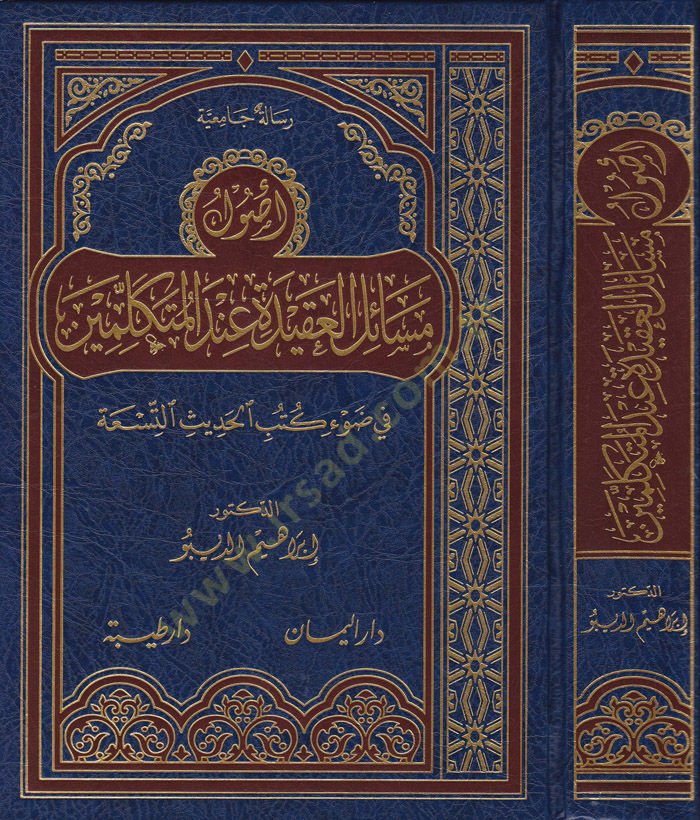 رسالة جامعيَّة
أُصُولُ
مَسَائِلِ العَقِيدَةِ عِنْدَ المُتَكَلِّمِينَ
فِي ضَوْءِ كُتُبِ الحَدِيثِ التِّسْعَةِ
الدكتور
إبراهيم الديبو
دار اليمان
دار طيبة
www.irsad.com
أُصُولُ
مَسَائِلِ العَقِيدَةِ عِنْدَ المُتَكَلِّمِينَ
الدكتور
إبراهيم الديبو